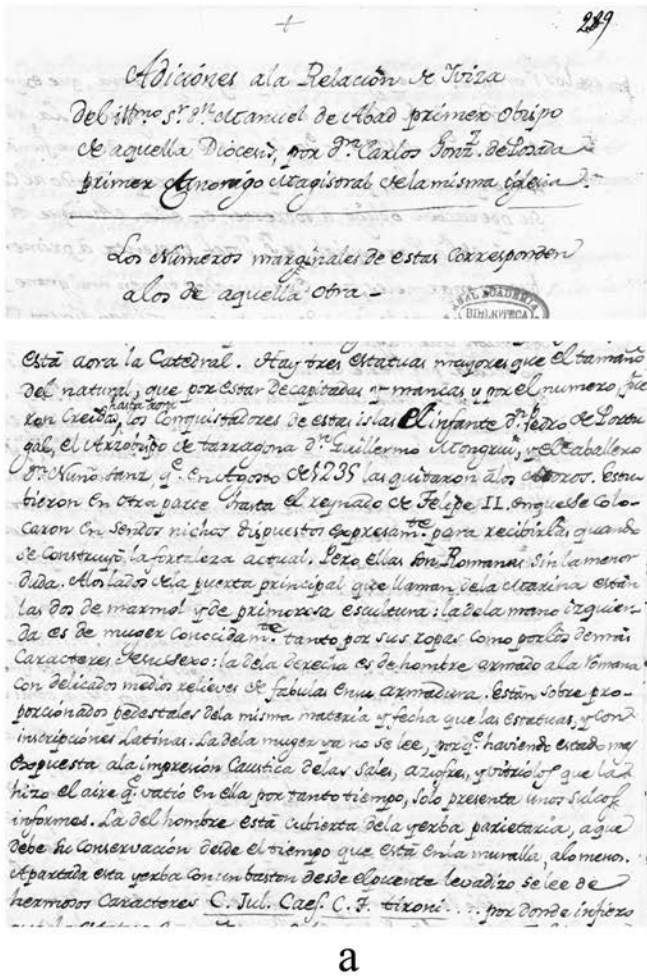 289
Adiciónes ala Relación de Iviza
del illmo sr. dn. Manuel de Abad primer obispo
de aquella Diocesis, por dn. Carlos Gonz. de Posada
primer Canonigo Magistral de la misma iglesia
Los Números marginales de estas corresponden
alos de aquella obra -
REAL ACADEMIA
BIBLIOTECA
está aora la Catedral. Hay tres estatuas mayores que el tamaño
del natural, que por estar decapitadas y mancas y por el numero, fue
ron creidas hasta aqui los conquistadores de estas islas el infante dn. Pedro de Portu
gal, el Arzobispo de tarragona dn. Guillermo Mongrui, y el Caballero
dn. Nuño Sanz, q. en Agosto de 1235 las quitaron alos Moros. Estu
bieron en otra parte hasta el reynado de Felipe II. en que se colo-
caron en sendos nichos dispuestos expresamte. para recibirlas quando
se construyó la fortaleza actual. Pero ellas son Romanas sin la menor
duda. Alos lados dela puerta principal que llaman dela Marina están
las dos de marmol y de primorosa escultura: la dela mano izquier-
da es de muger conocidamte. tanto por sus ropas como por los demás
caracteres de su sexo: la dela derecha es de hombre armado ala Romana
con delicados medios relieves de fabulas en su armadura. Están sobre pro-
porcionados pedestales dela misma materia y fecha que las estatuas, y con
inscripciónes Latinas. La dela muger ya no se lee, porq. haviendo estado mas
expuesta ala impresión caustica delas sales, azufres, y vitriolos que la
hizo el aire q. vatió en ella por tanto tiempo, solo presenta unos sulcos
informes. La del hombre está cubierta dela yerba parietaria, a que
debe su conservación desde el tiempo que está en la muralla, alo menos.
Apartada esta yerba con un baston desde el puente levadizo se lee de
hermosos caracteres C. Jul. Caes. C. F. tironi... por donde infiero
a